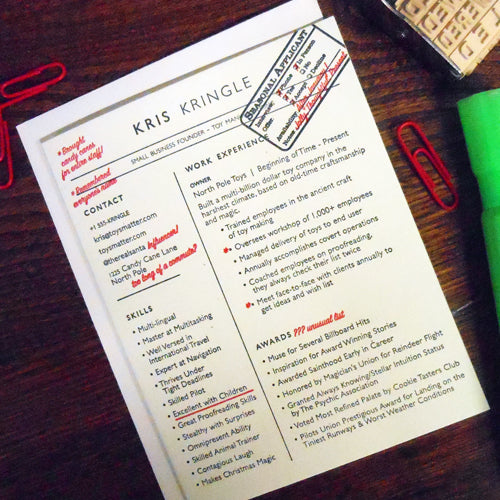 KRIS KRINGLE
SMALL BUSINESS FOUNDER – TOY
SEASONAL APPLICANT
Interview: Phone In Person
Offer: Yes No
Accept Decline
Availability:
Notes: Jolly
* Brought
candy canes
for entire staff!
* Remembered
everyones name
CONTACT
+1 555-KRINGLE
kris@toysmatter.com
toysmatter.com
@therealsanta influencer!
1225 Candy Cane Lane
North Pole too long of a commute?
SKILLS
• Multi-lingual
• Master at Multitasking
• Well Versed in
International Travel
• Expert at Navigation
• Thrives Under
Tight Deadlines
• Skilled Pilot
• Excellent with Children
• Great Proofreading Skills
• Stealthy with Surprises
• Omnipresent Ability
• Skilled Animal Trainer
• Contagious Laugh
• Makes Christmas Magic
WORK EXPERIENCE
OWNER
North Pole Toys | Beginning of Time - Present
Built a multi-billion dollar toy company in the
harshest climate, based on old-time craftsmanship
and magic.
• Trained employees in the ancient craft
of toy making
• Oversees workshop of 1,000+ employees
• Managed delivery of toys to end user
• Annually accomplishes covert operations
• Coached employees on proofreading,
they always check their list twice
• Meet face-to-face with clients annually to
get ideas and wish list
AWARDS ??? unusual list
• Muse for Several Billboard Hits
• Inspiration for Award Winning Stories
• Awarded Sainthood Early in Career
• Honored by Magician's Union for Reindeer Flight
• Granted Always Knowing/Stellar Intuition Status
by The Psychic Association
• Voted Most Refined Palate by Cookie Tasters Club
• Pilots Union Prestigious Award for Landing on the
Tiniest Runways & Worst Weather Conditions